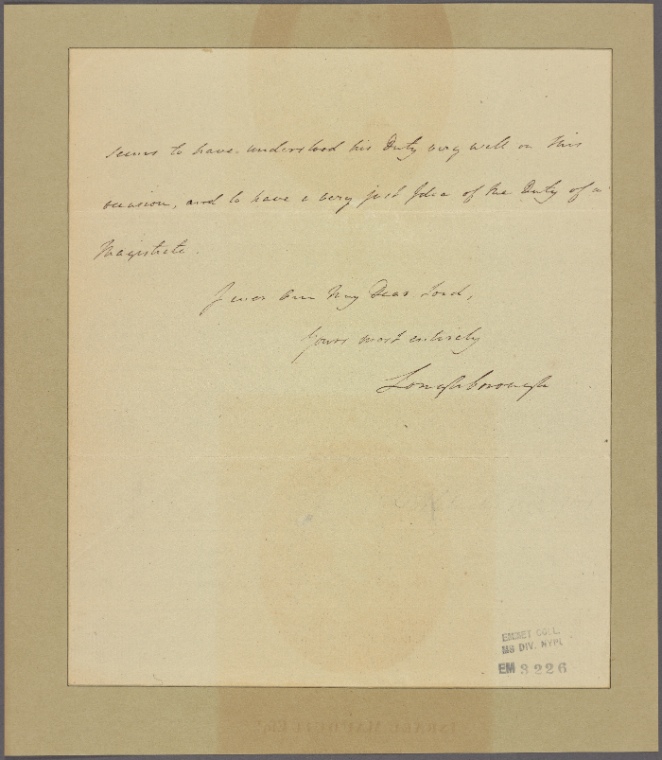 seems to have understood his Duty very well on this
occasion, and to have a very just Idea of the Duty of a
Magistrate.
I ever am My Dear Lord,
Yours most entirely
Loughborough
EMMET COLL.
MS DIV. NYPL
EM 3226